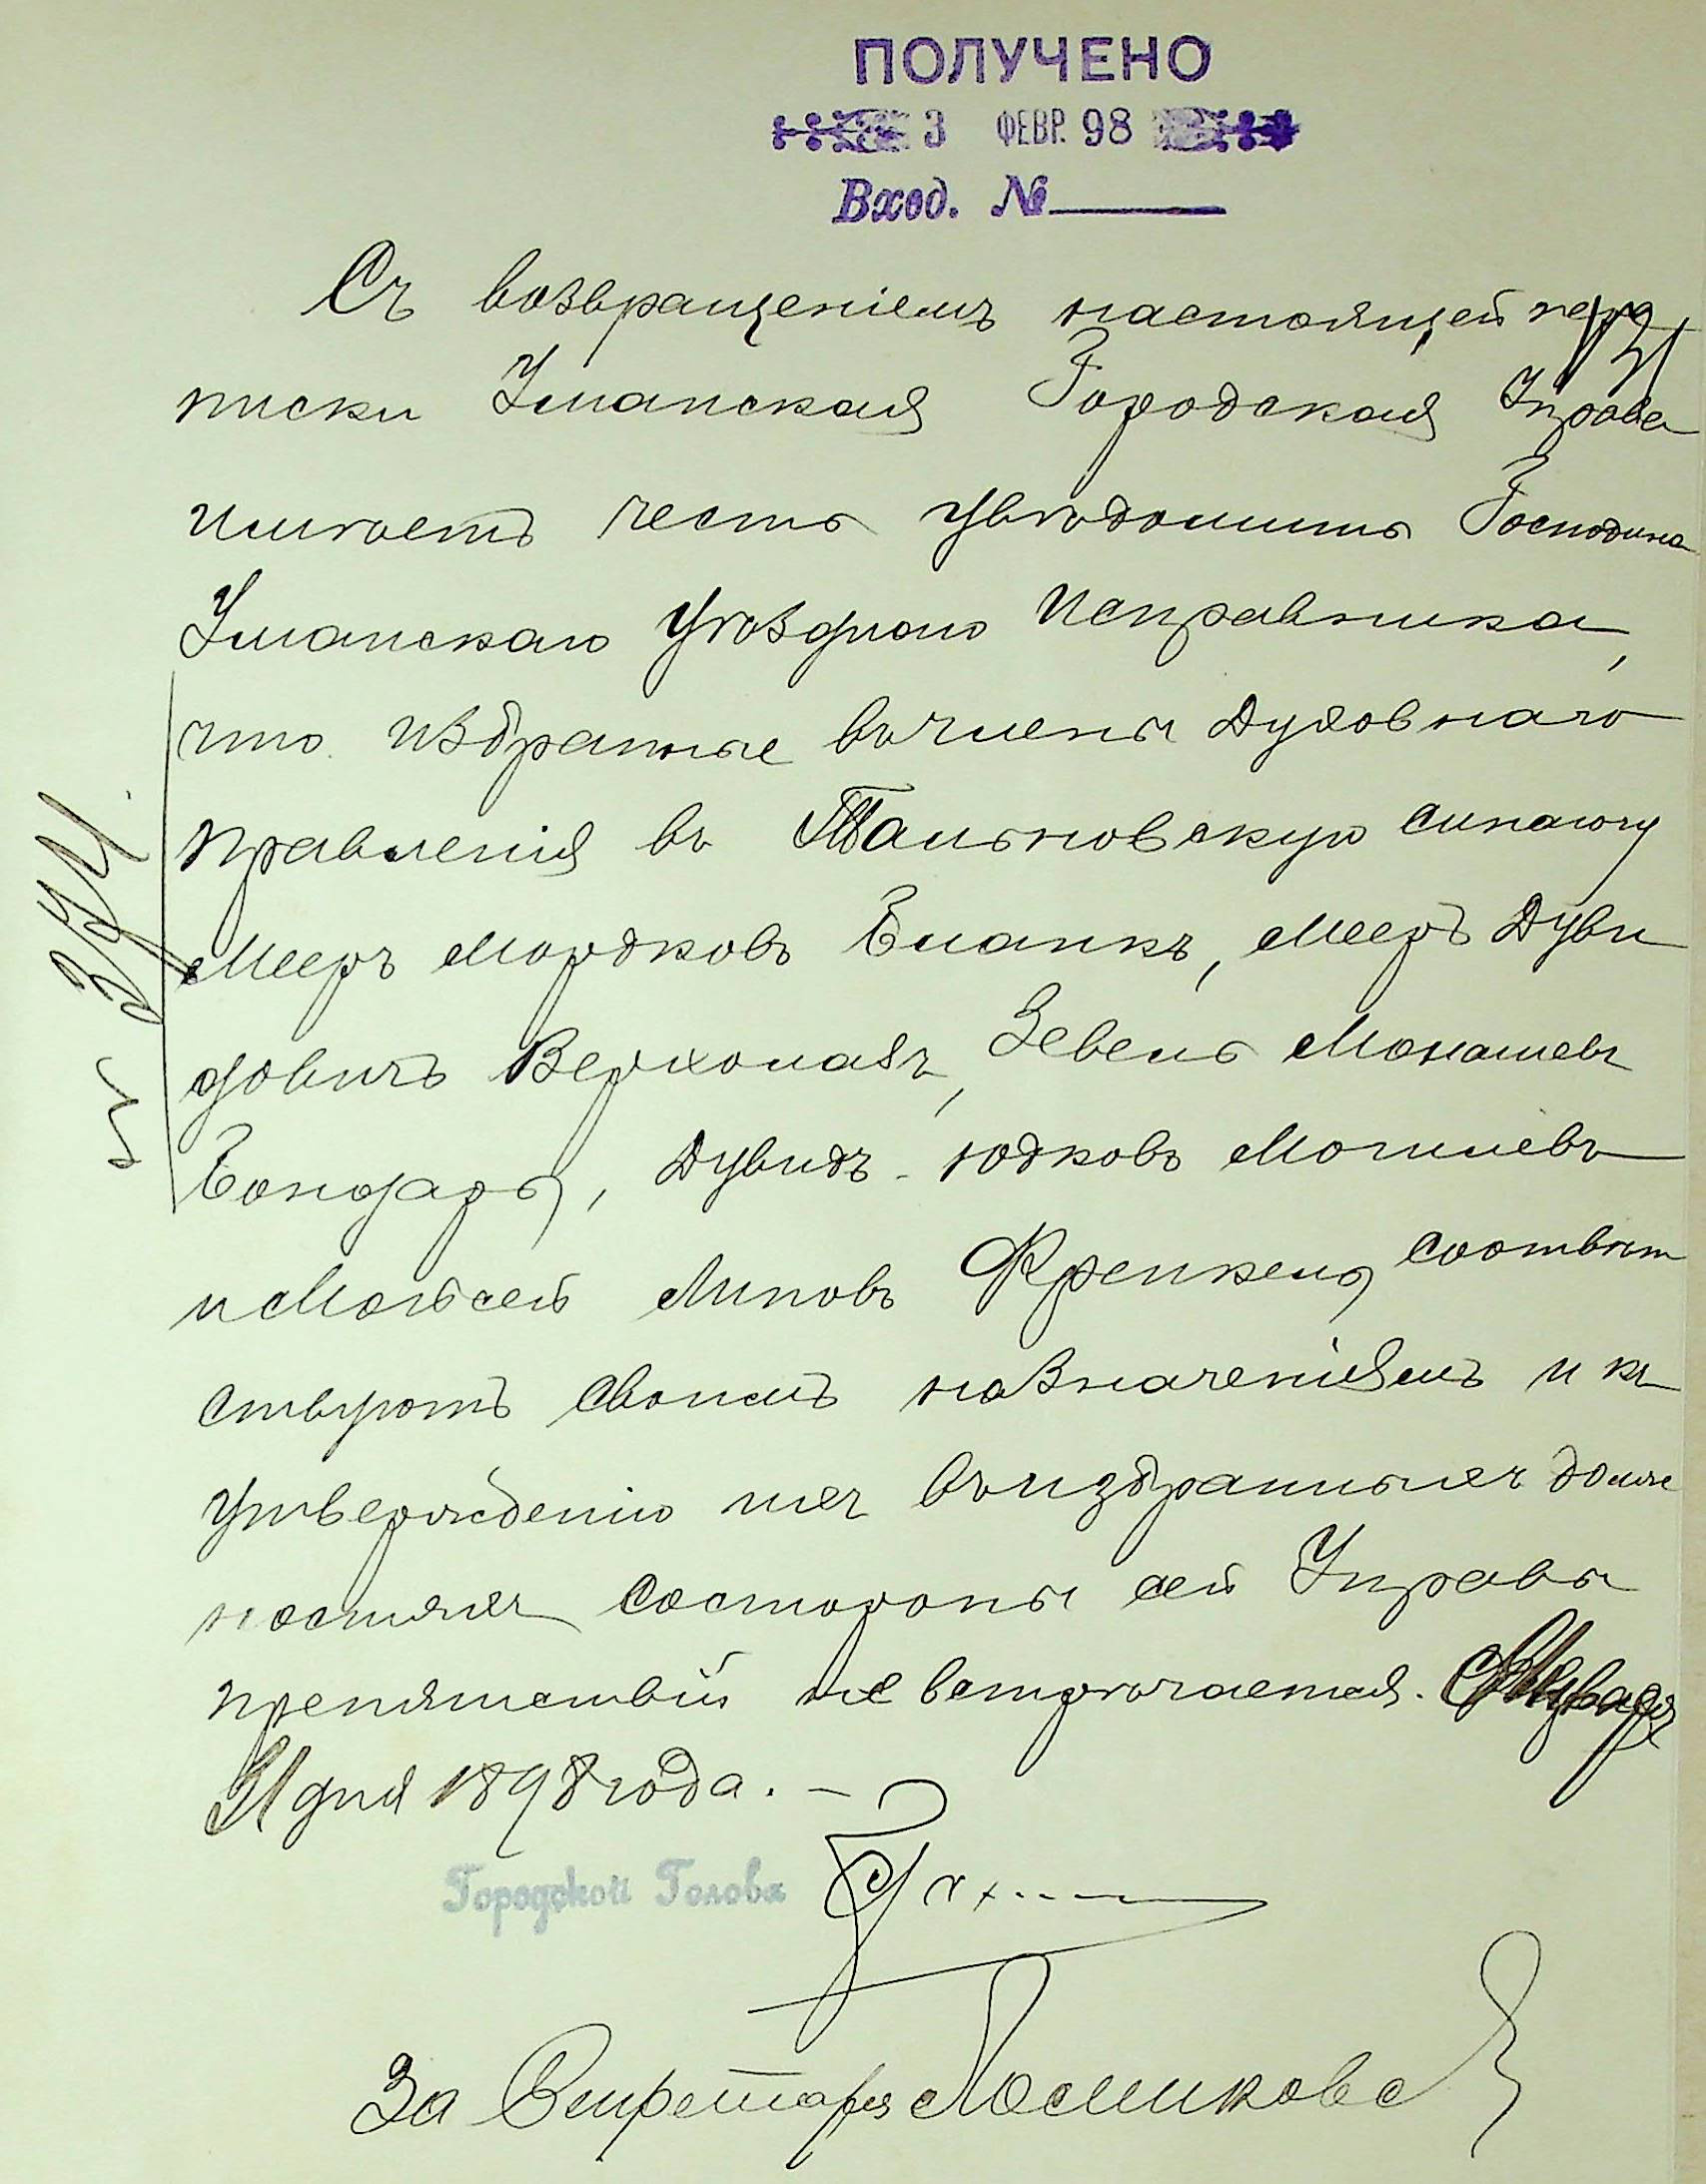 ПОЛУЧЕНО
3 ФЕВР. 98
Вход. №
Съ возвращеніемъ настоящей пере
писки Уманская Городская Управа
имѣетъ честь увѣдомить Господина
Уманскаго Уѣзднаго Исправника,
что избранные въ члены Духовнаго
правленія въ Тальновскую синагогу
Мееръ Мордковъ Бланкъ, Мееръ Дуви
довичъ Верхолазъ, Зевель Монашевъ
Бондарь, Дувидъ Юдковъ Могилевъ
и Мойсей Липовъ Френкель соотвѣт
ствуютъ своимъ назначеніямъ и къ
утвержденію ихъ въ избранныхъ долж
ностяхъ со стороны сей Управы
препятствій не встрѣчается. Января
31 дня 1898 года. –
Городской Голова
За Секретаря